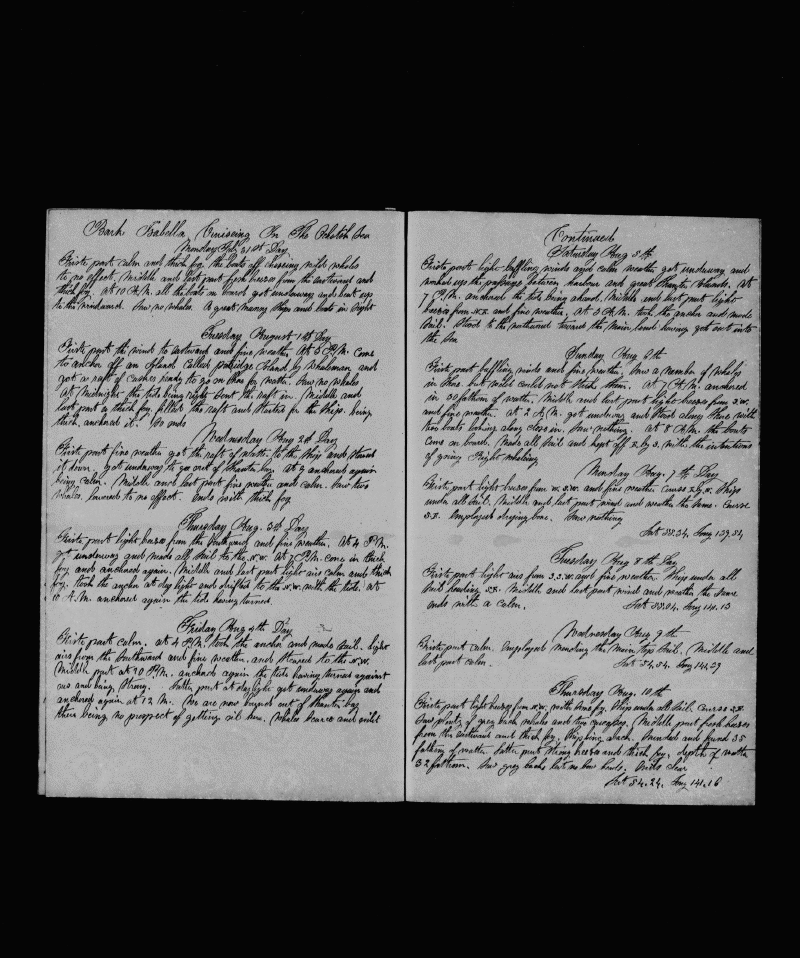 Bark Isabella Cruiseing In The Ochotsk Sea
Monday July 31st Day
Firste part calm and thick fog the boats off chaseing wild whales
to no effect, Middle and last part fresh breses from the eastward and
thick fog. at 10 A.M. all the boats on board got underway and beat up
to the windward. Saw no whales. A great many ships and boats in sight
Tuesday August 1st Day
Firste part the wind to eastward and fine weather. At 3 P.M. come
to anchor off an Island called poredge Island by whalemen, and
got a raft of caskes ready to go on shore for water. Saw no whales
at Midnight the tide being right sent the raft in. Middle and
last part a thick fog, filled the raft and started for the ship. being
thick, anchored it. So ends
Wednesday Aug 2d Day
Firste part fine weather got the raft of water to the ship and stowed
it down. got underway to go out of Shantar bay. at 9 anchored again
being calm. Middle and last part fine weather and calm. Saw two
whales, lowered to no effect. Ends with thick fog
Thursday Aug. 3d Day
Firste part light breses from the Southward and fine weather. At 4 P.M.
got underway and made all sail to the N.W. At 7 P.M. come in thick
fog and anchored again. Middle and last part light airs calm and thick
fog. took the anchor at day light and drifted to the N.W. with the tide. at
10 A.M. anchored again the tide having turned.
Friday Aug 4th Day
Firste part calm. at 4 P.M. took the anchor and made sail. light
airs from the Southward and fine weather. and steared to the N.W.
Middle part at 10 P.M. anchored again the tide having turned against
us and being strong. Latter part at daylight got underway again and
anchored again at 12 M. We are now bound out of Shantar bay
their being no prospect of getting oil here. Whales scarce and wild
Continued
Saturday Aug 5th
Firste part light baffling winds and calm weather got underway and
worked up the passage between harbour and great Shantar Islands. At
7 P.M. anchored the tide being ahead. Middle and last part light
breses from N.E. and fine weather. At 3 A.M. took the anchor and made
Sail. Stood to the northward towards the Main land having got out into
the Sea
Sunday Aug 6th
Firste part baffling winds and fine weather. Saw a number of whales
in shore but could not strike them. At 7 P.M. anchored
in 30 fathom of water. Middle and last part light breses from S.W.
and fine weather. at 2 A.M. got underway and stood along shore with
two boats looking along close in. Saw nothing. at 8 A.M. the boats
come on board. Made all sail and kept off E. by S. with the intentions
of going Right whaleing
Monday Aug. 7th Day
Firste part light breses from W.S.W. and fine weather course E by N. Ships
under all sail. Middle and last part wind and weather the same. Course
S.E. Employed drying bone. Saw nothing
Lat 55.24. Long 139.52
Tuesday Aug 8th Day
Firste part light airs from S.S.W. and fine weather. Ships under all
sail heading S.E. Middle and last part wind and weather the same
ends with a calm. Lat 55.04. Long 141.13
Wednesday Aug 9th
Firste part calm. Employed mending the main top sail. Middle and
last part calm. Lat 54.54. Long 141.29
Thursday Aug. 10th
Firste part light breses from N.W. with some fog. Ships under all sail. Course S.E.
Saw plenty of grey back whales and two Middle part fresh breses
from the eastward and thick fog. Sounded and found 35
fathoms of water. Latter part strong breses and thick fog, depth of water
32 fathom. Saw grey backs but no bow heads. Ends So
Lat 54.24. Long 141.16